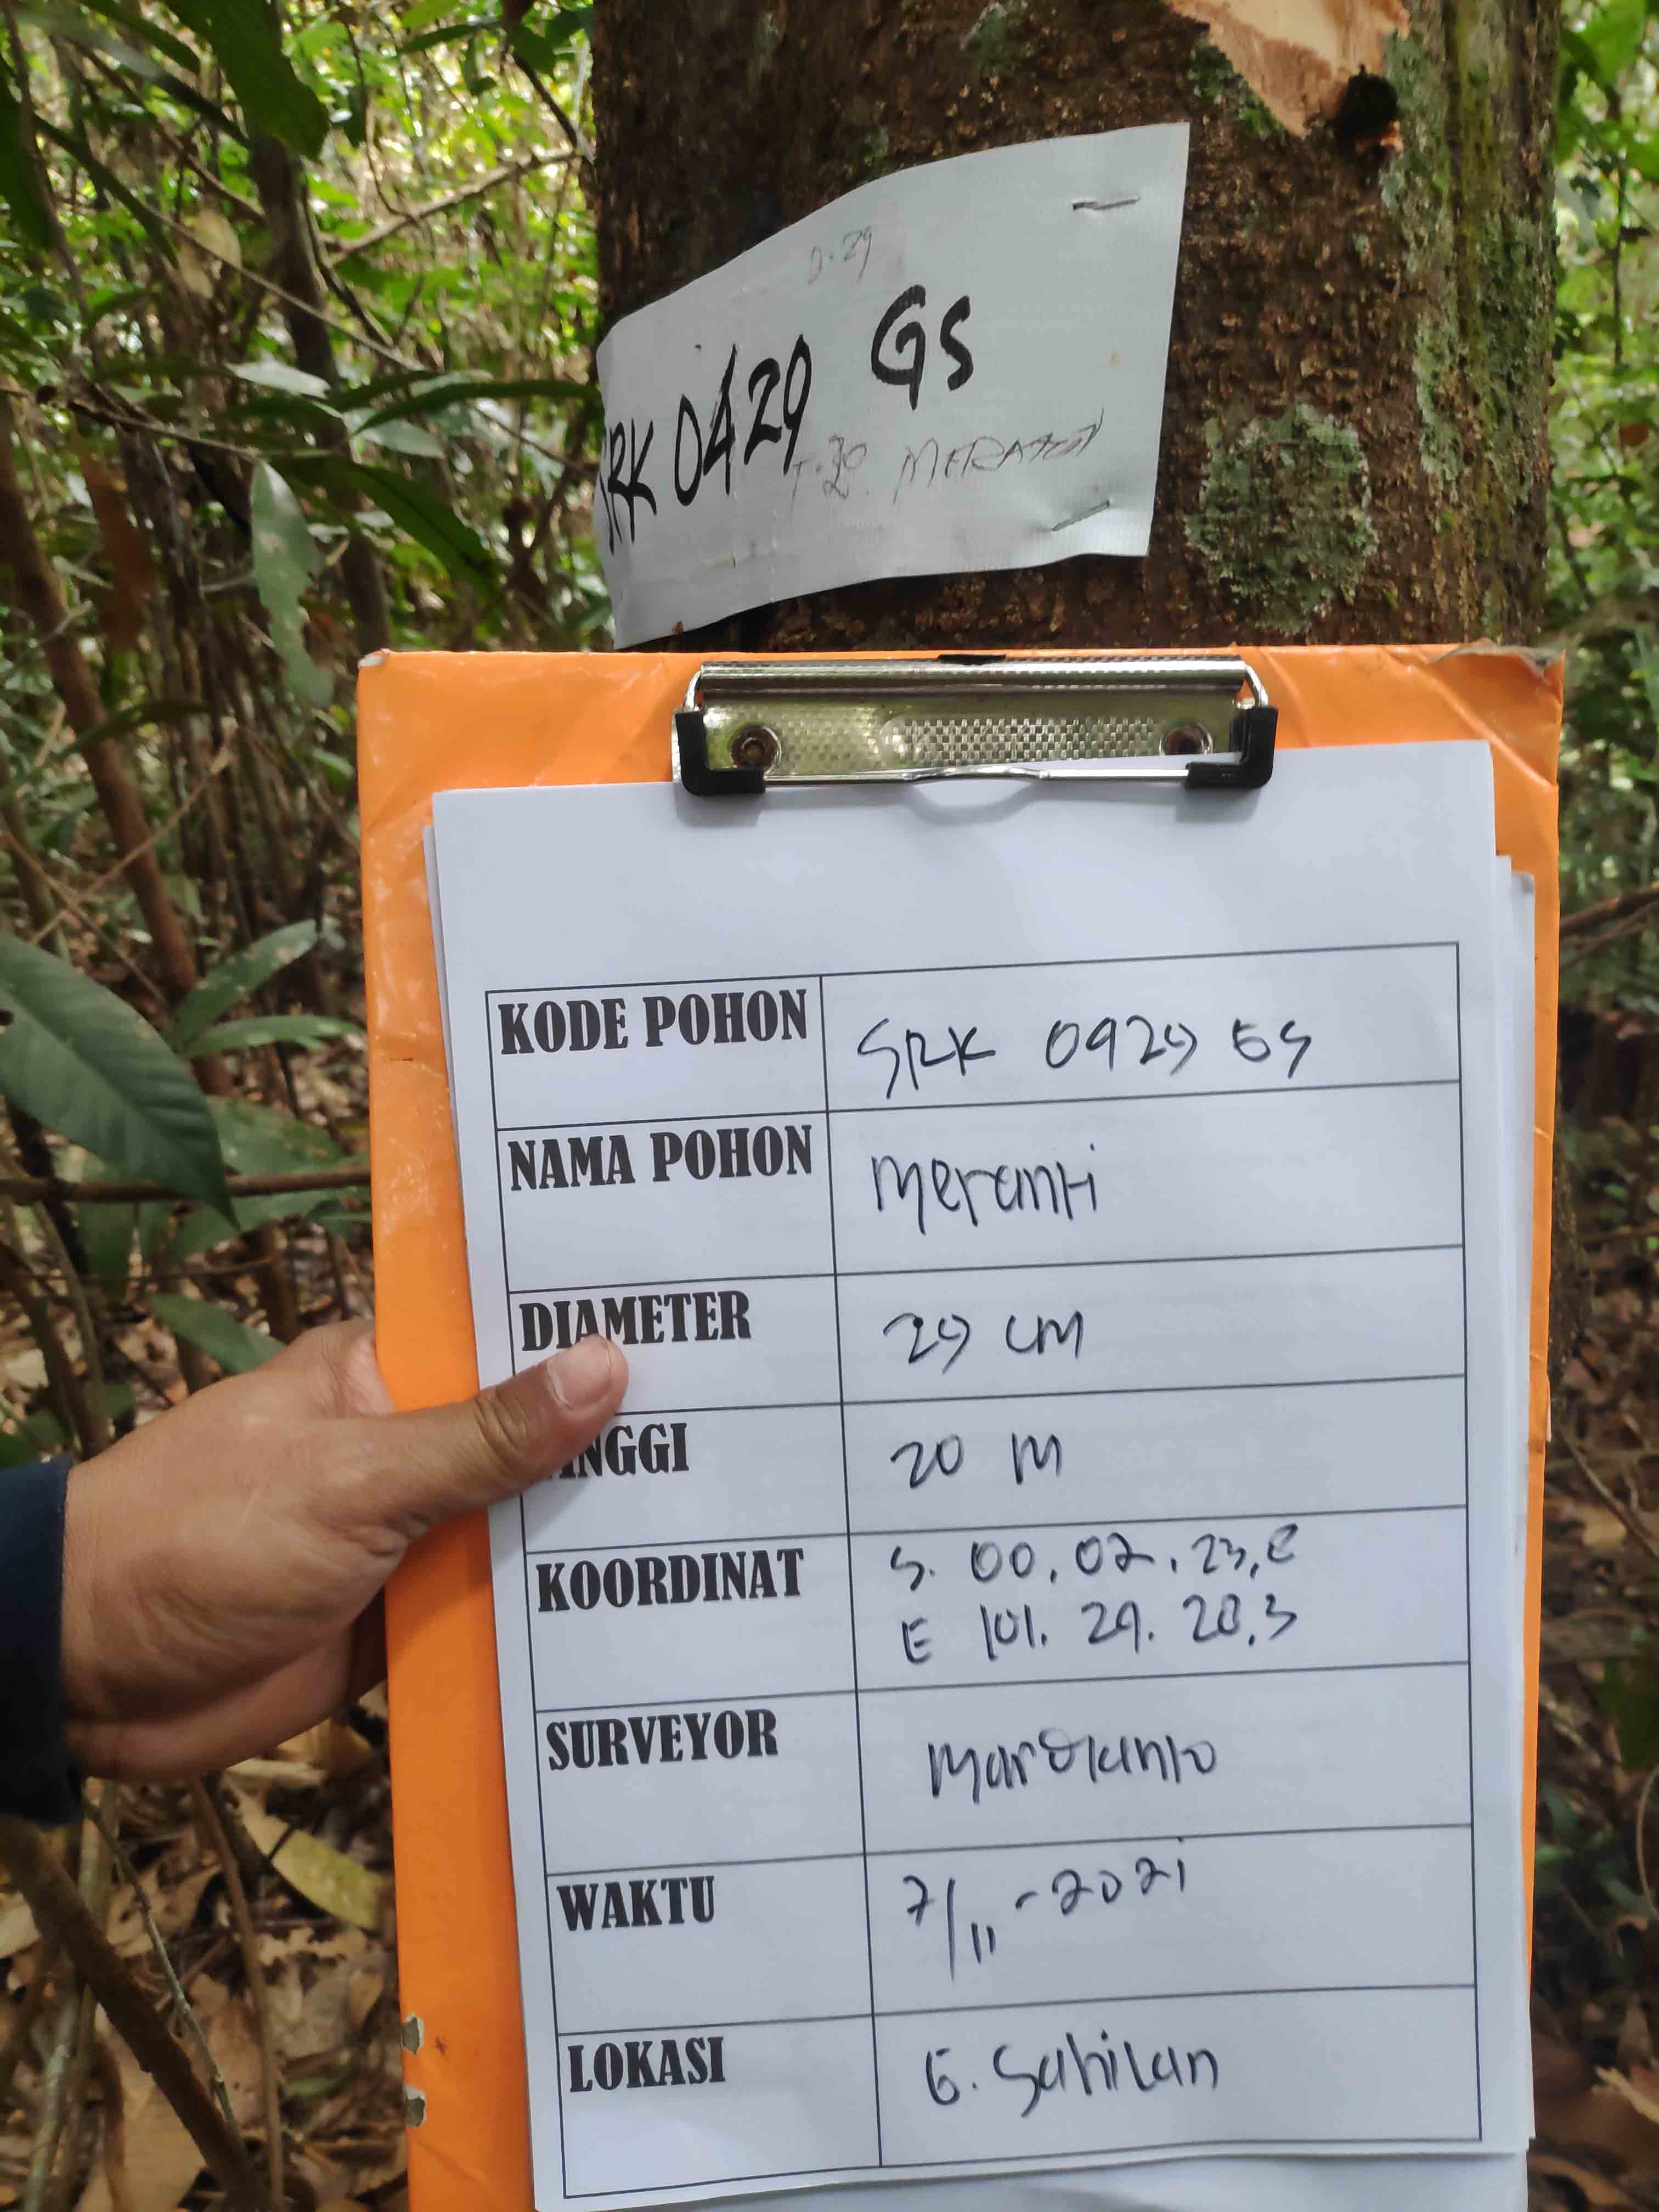 D.29
SRK 0429 GS
T.20. MERANTI
KODE POHON SRK 0429 GS
NAMA POHON Meranti
DIAMETER 29 CM
TINGGI 20 M
KOORDINAT S. 00. 02. 23,
E 101. 29. 28,3
SURVEYOR
WAKTU 7/11-2021
LOKASI G. Sahilan